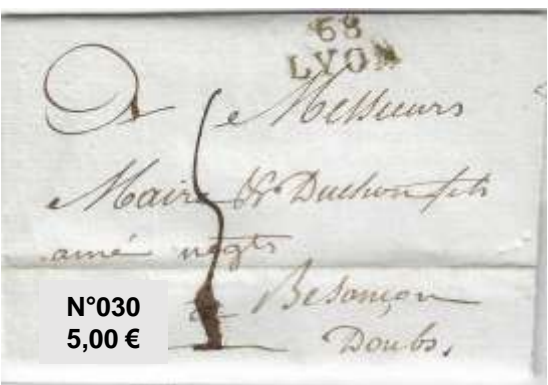 68
LYON
A Messieurs
Maire & Duchon fils
ainé négts
à Besançon
Doubs.
N°030
5,00 €